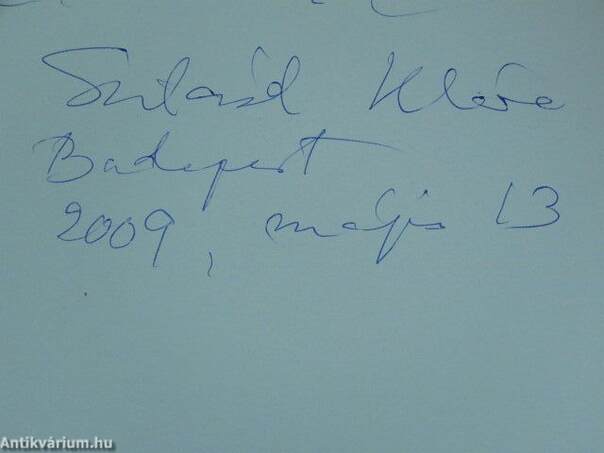 Szilárd Klára
Budapest
2009, május 13
Antikvárium.hu